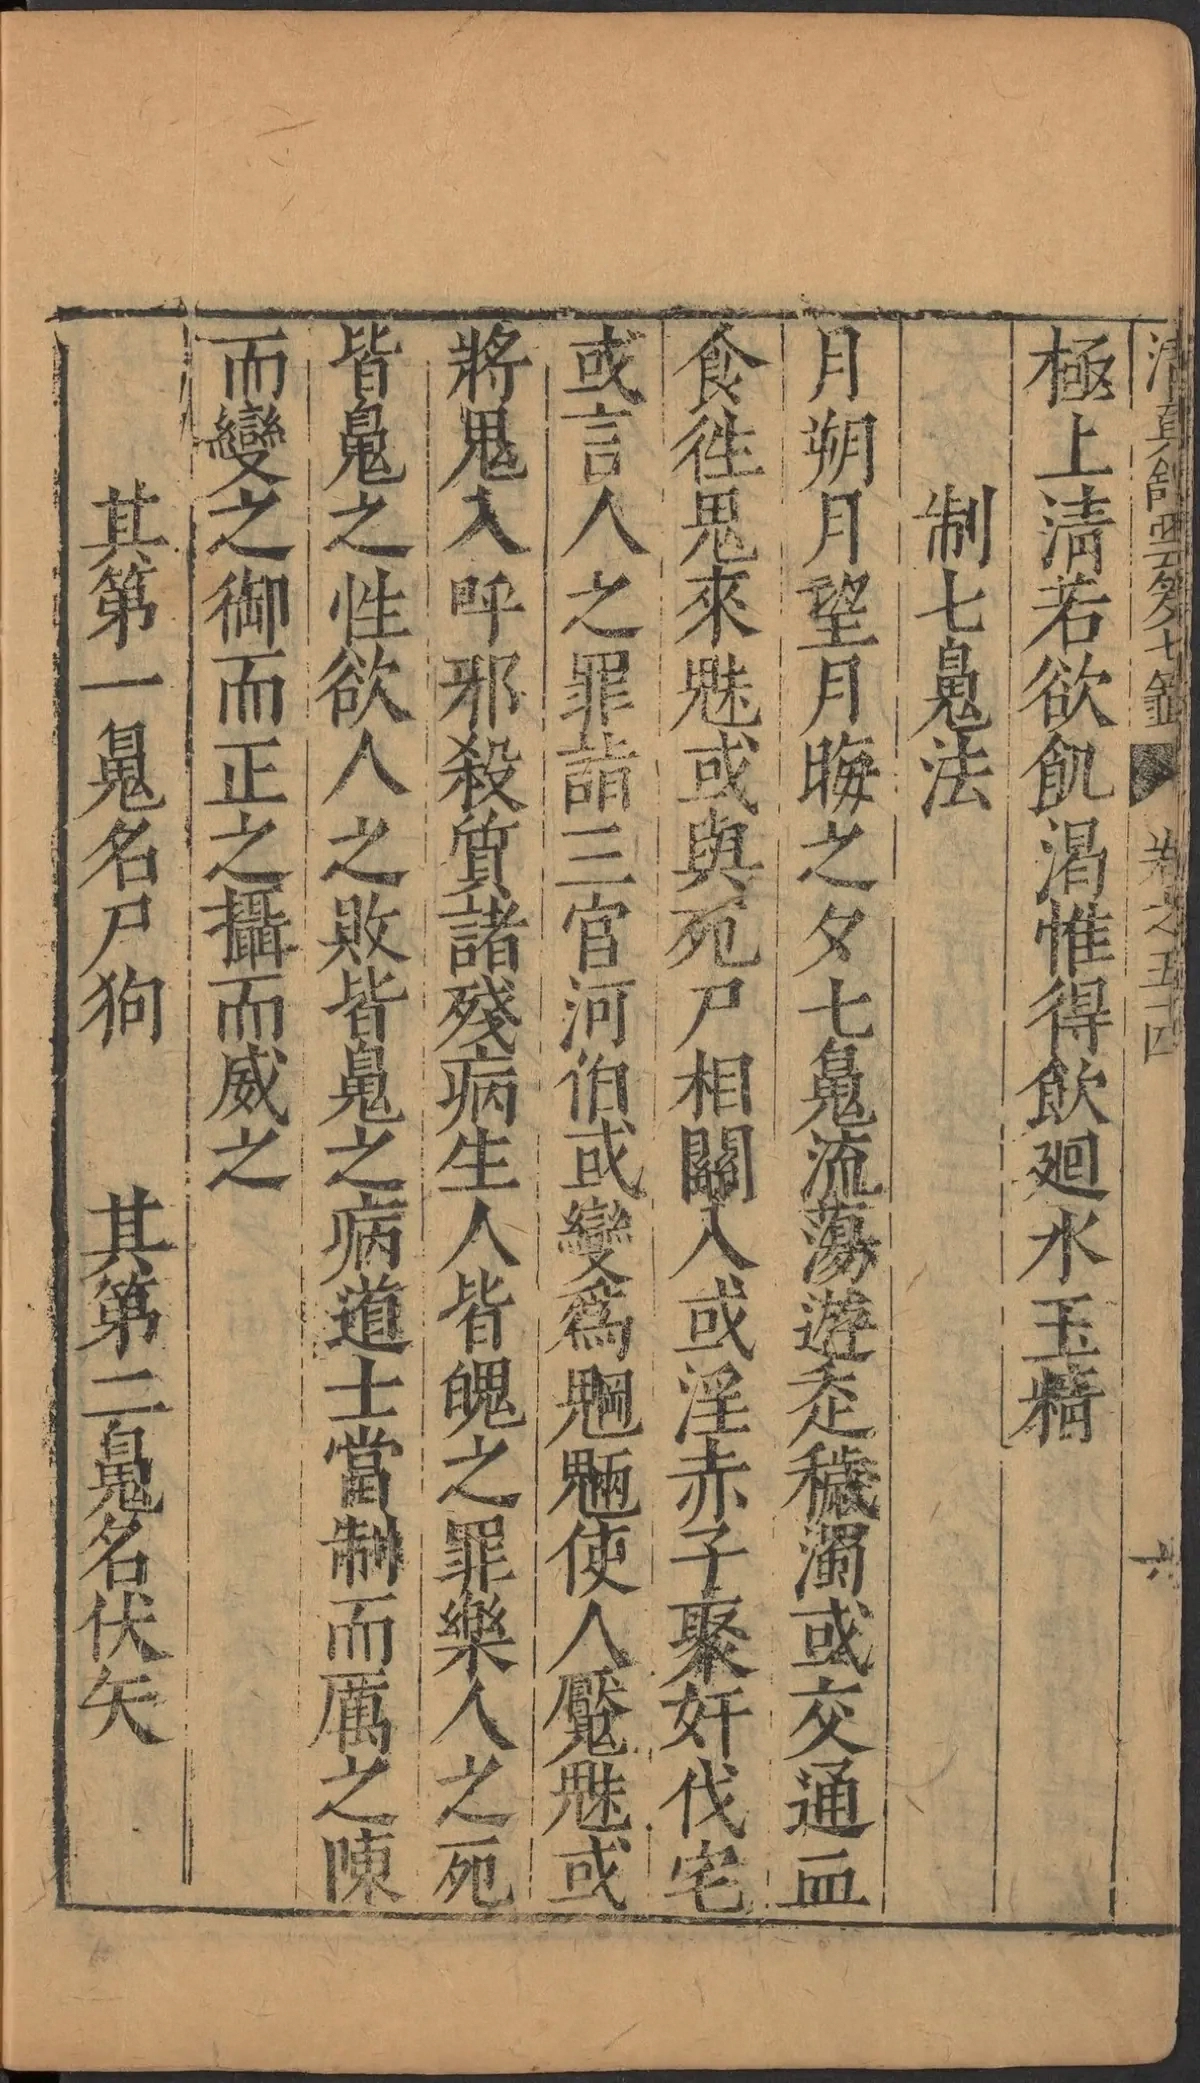 清真館雲笈七籤 卷之五十四 六
極上清若欲飢渴惟得飲廻水玉精
制七鬼法
月朔月望月晦之夕七鬼流蕩遊走穢濁或交通血
食徃鬼來魅或與死尸相關入或淫赤子聚奸伐宅
或言人之罪詣三官河伯或變為魍魎使人魘魅或
將鬼入呼邪殺質諸殘病生人皆魄之罪樂人之死
皆鬼之性欲人之敗皆鬼之病道士當制而厲之陳
而變之御而正之攝而威之
其第一鬼名尸狗 其第二鬼名伏矢